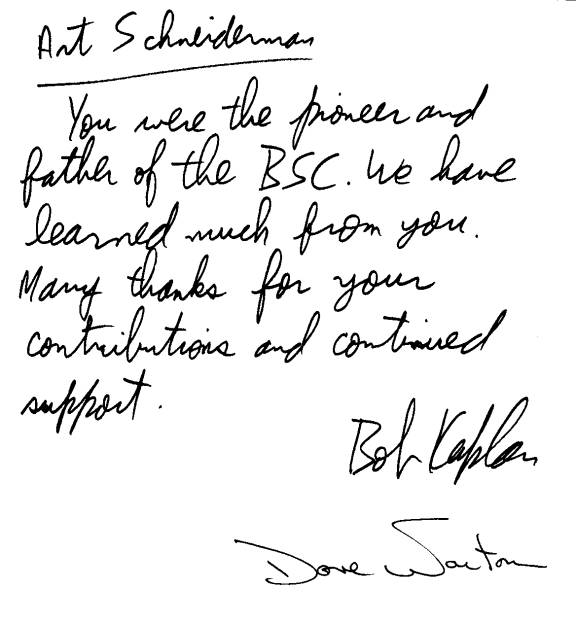 Art Schneiderman
You were the pioneer and
father of the BSC. We have
learned much from you.
Many thanks for your
contributions and continued
support.
Bob Kaplan
Dave Norton